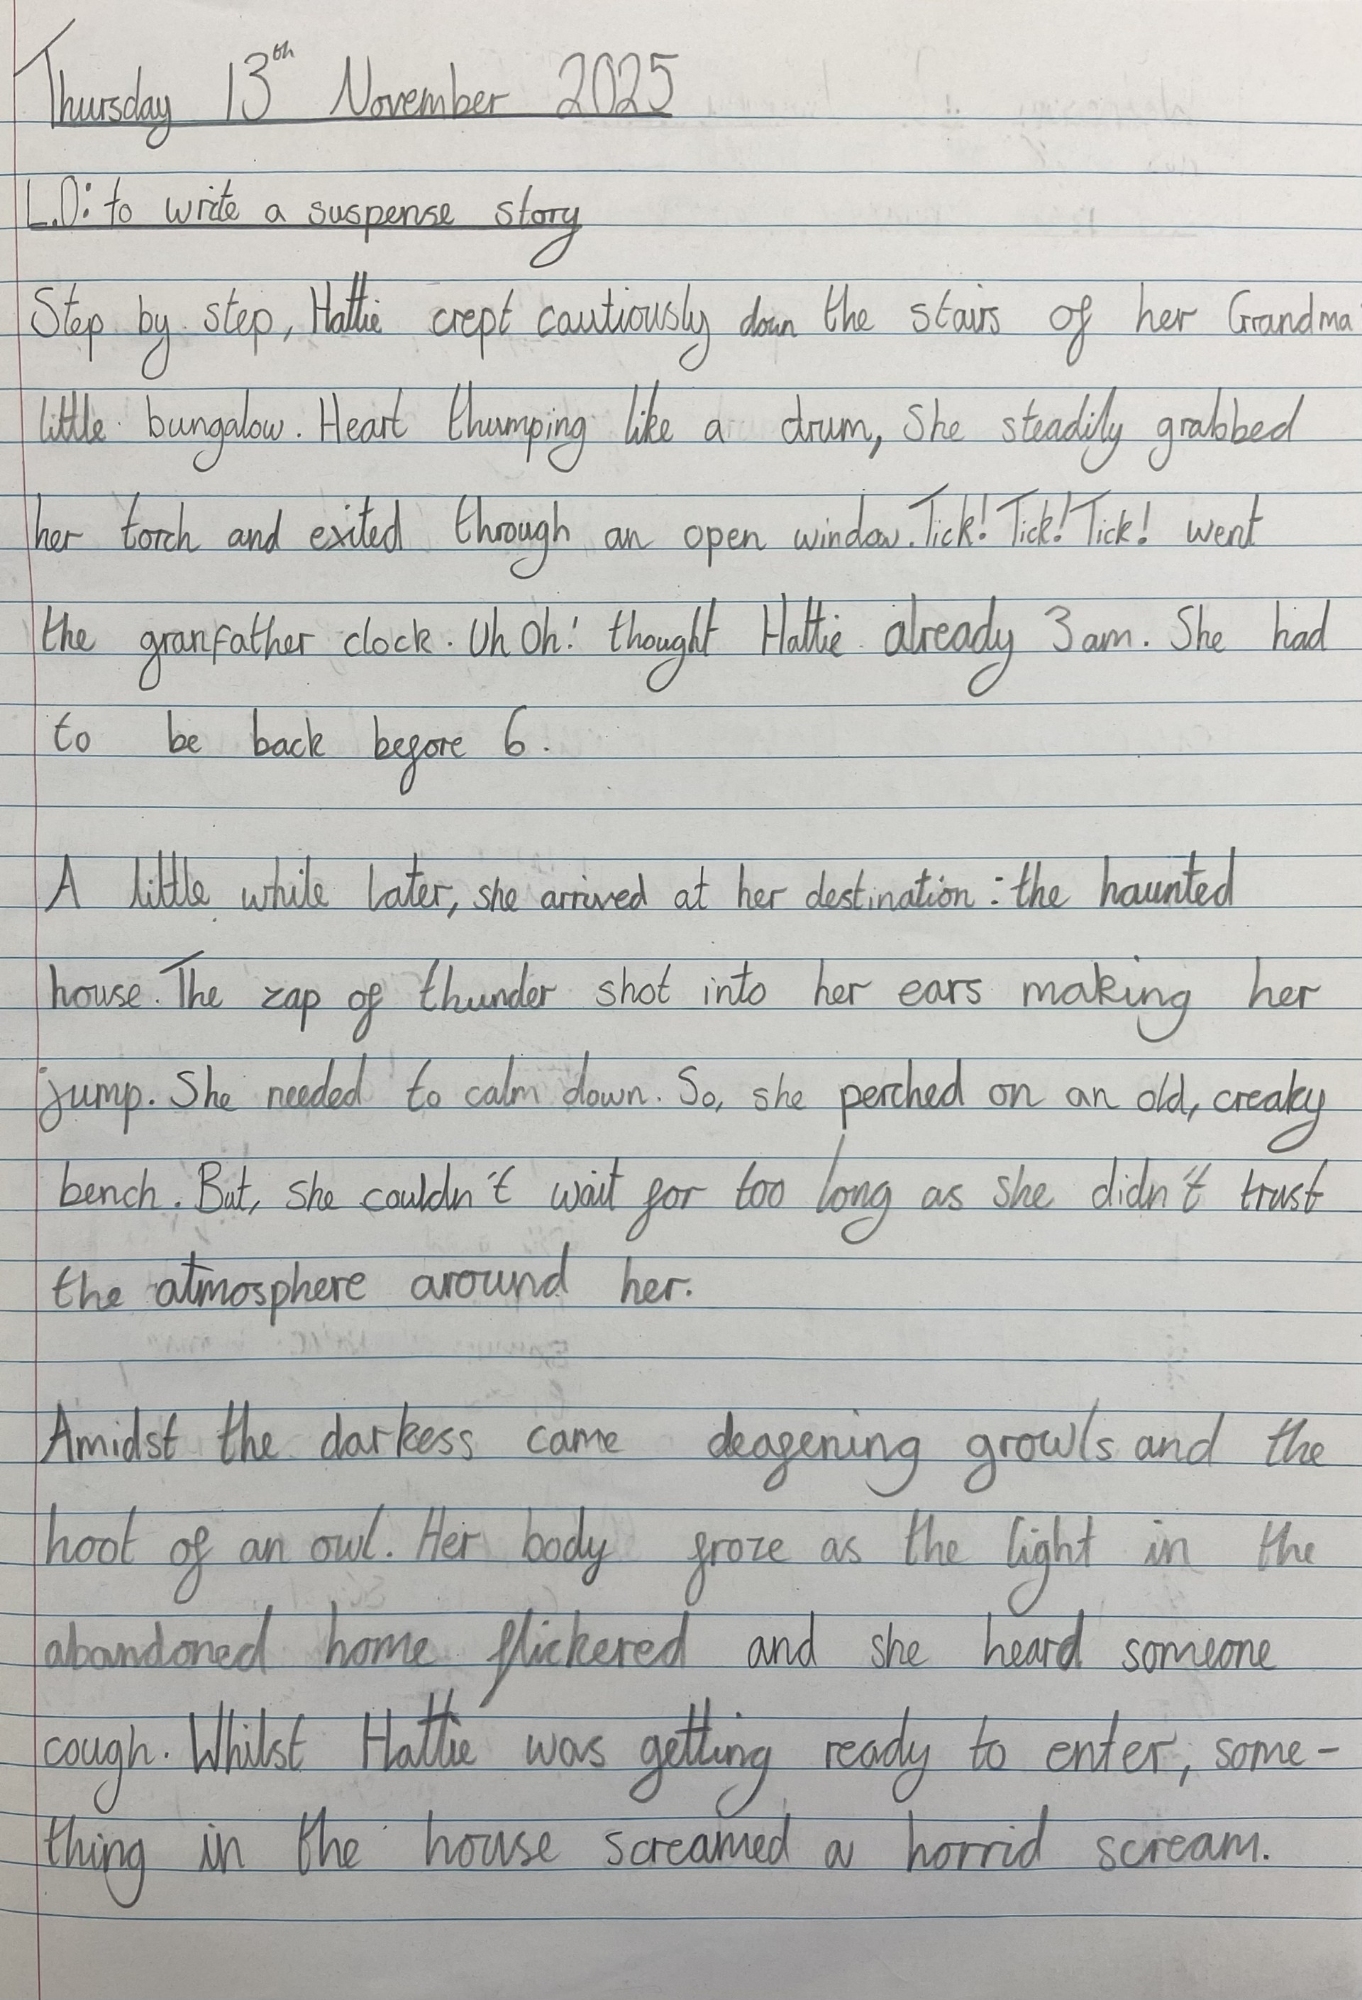 Thursday 13th November 2025
L.O: to write a suspense story
Step by step, Hattie crept cautiously down the stairs of her Grandma
little bungalow. Heart thumping like a drum, She steadily grabbed
her torch and exited through an open window. Tick! Tick! Tick! went
the granfather clock. Uh Oh! thought Hattie already 3am. She had
to be back before 6.
A little while later, she arrived at her destination: the haunted
house. The zap of thunder shot into her ears making her
jump. She needed to calm down. So, she perched on an old, creaky
bench. But, she couldn't wait for too long as she didn't trust
the atmosphere around her.
Amidst the darkess came deafening growls and the
hoot of an owl. Her body froze as the light in the
abandoned home flickered and she heard someone
cough. Whilst Hattie was getting ready to enter, some-
thing in the house screamed a horrid scream.